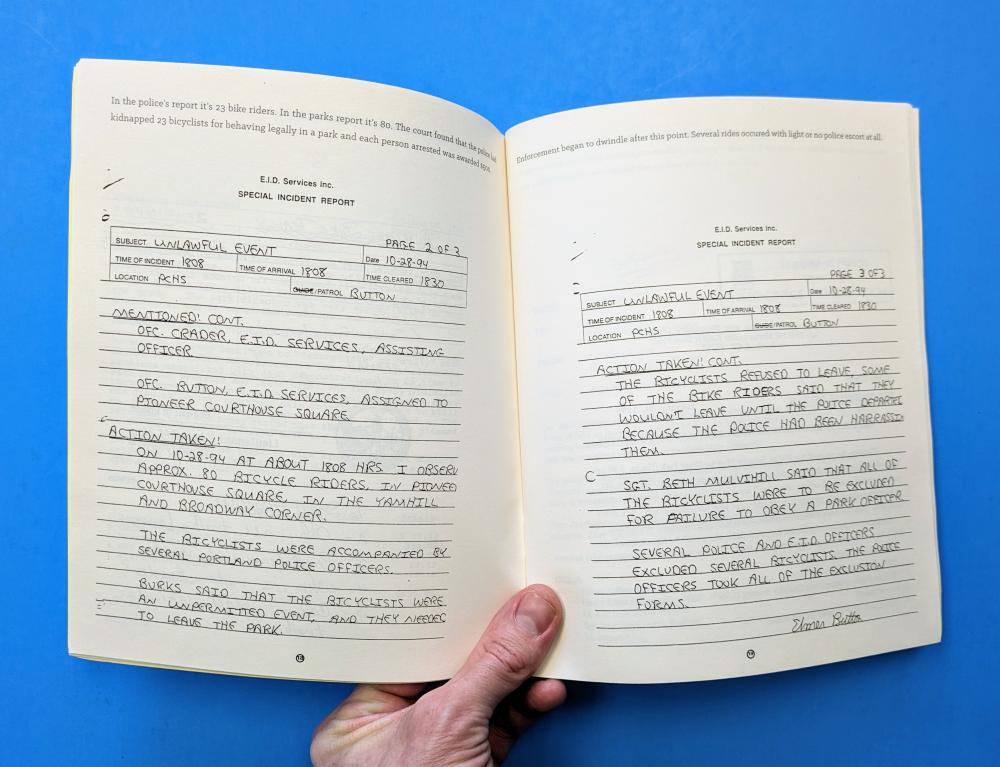 In the police's report it's 23 bike riders. In the parks report it's 80. The court found that the police had
kidnapped 23 bicyclists for behaving legally in a park and each person arrested was awarded
E.I.D. Services Inc.
SPECIAL INCIDENT REPORT
PAGE 2 OF 3
SUBJECT UNLAWFUL EVENT Date 10-28-94
TIME OF INCIDENT 1808 TIME OF ARRIVAL 1808 TIME CLEARED 1830
LOCATION PCHS GUIDE/PATROL BUTTON
MENTIONED! CONT.
OFC. CRADER, E.I.D. SERVICES, ASSISTING
OFFICER
OFC. BUTTON, E.I.D SERVICES, ASSIGNED TO
PIONEER COURTHOUSE SQUARE
ACTION TAKEN!
ON 10-28-94 AT ABOUT 1808 HRS. I OBSERV
APPROX. 80 BICYCLE RIDERS, IN PIONEE
COURTHOUSE SQUARE, IN THE YAMHILL
AND BROADWAY CORNER.
THE BICYCLISTS WERE ACCOMPANIED BY
SEVERAL PORTLAND POLICE OFFICERS.
BURKS SAID THAT THE BICYCLISTS WERE
AN UNPERMITTED EVENT, AND THEY NEEDED
TO LEAVE THE PARK.
18
Enforcement began to dwindle after this point. Several rides occured with light or no police escort at all.
E.I.D. Services Inc.
SPECIAL INCIDENT REPORT
PAGE 3 OF 3
SUBJECT UNLAWFUL EVENT Date 10-28-94
TIME OF INCIDENT 1808 TIME OF ARRIVAL 1808 TIME CLEARED 1830
LOCATION PCHS GUIDE/PATROL BUTTON
ACTION TAKEN! CONT.
THE BICYCLISTS REFUSED TO LEAVE, SOME
OF THE BIKE RIDERS SAID THAT THEY
WOULDN'T LEAVE UNTIL THE POLICE DEPARTED
BECAUSE THE POLICE HAD BEEN HARRASSIN
THEM.
SGT. BETH MULVIHILL SAID THAT ALL OF
THE BICYCLISTS WERE TO BE EXCLUDED
FOR FAILURE TO OBEY A PARK OFFICER
SEVERAL POLICE AND E.I.D. OFFICERS
EXCLUDED SEVERAL BICYCLISTS. THE POLICE
OFFICERS TOOK ALL OF THE EXCLUSION
FORMS.
Elmer Button
19